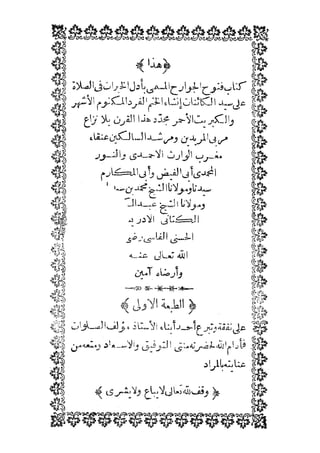 ﴿ هذا ﴾
كتاب فتوح الجوارح المسمى بأدل الخيرات في الصلاة
على سيد الكائنات إنشاء الختم الفرد المكتوم الأشهر
والكبريت الأحمر مجدد هذا القرن بلا نزاع
مربي المريدين ومرشد السالكين عنقاء
مغرب الوارث الاحمدي والنور
المحمدي أبي الفيض وأبي المكارم
سيدنا ومولانا الشيخ محمد بن سيدنا
ومولانا الشيخ عبد
الكتاني الادريسي
الحسني الفاسي رضي
الله تعالى عنه
وأرضاه آمين
﴿ الطبعة الاولى ﴾
على نفقة وتبرع أحد أبناء الأستاذ مؤلف الصلوات
فأدام الله لحضرته التوفيق والاسعاد ومتعه من
عنايته بالمراد
﴿ وقف لله تعالى لا يباع ولا يشترى ﴾